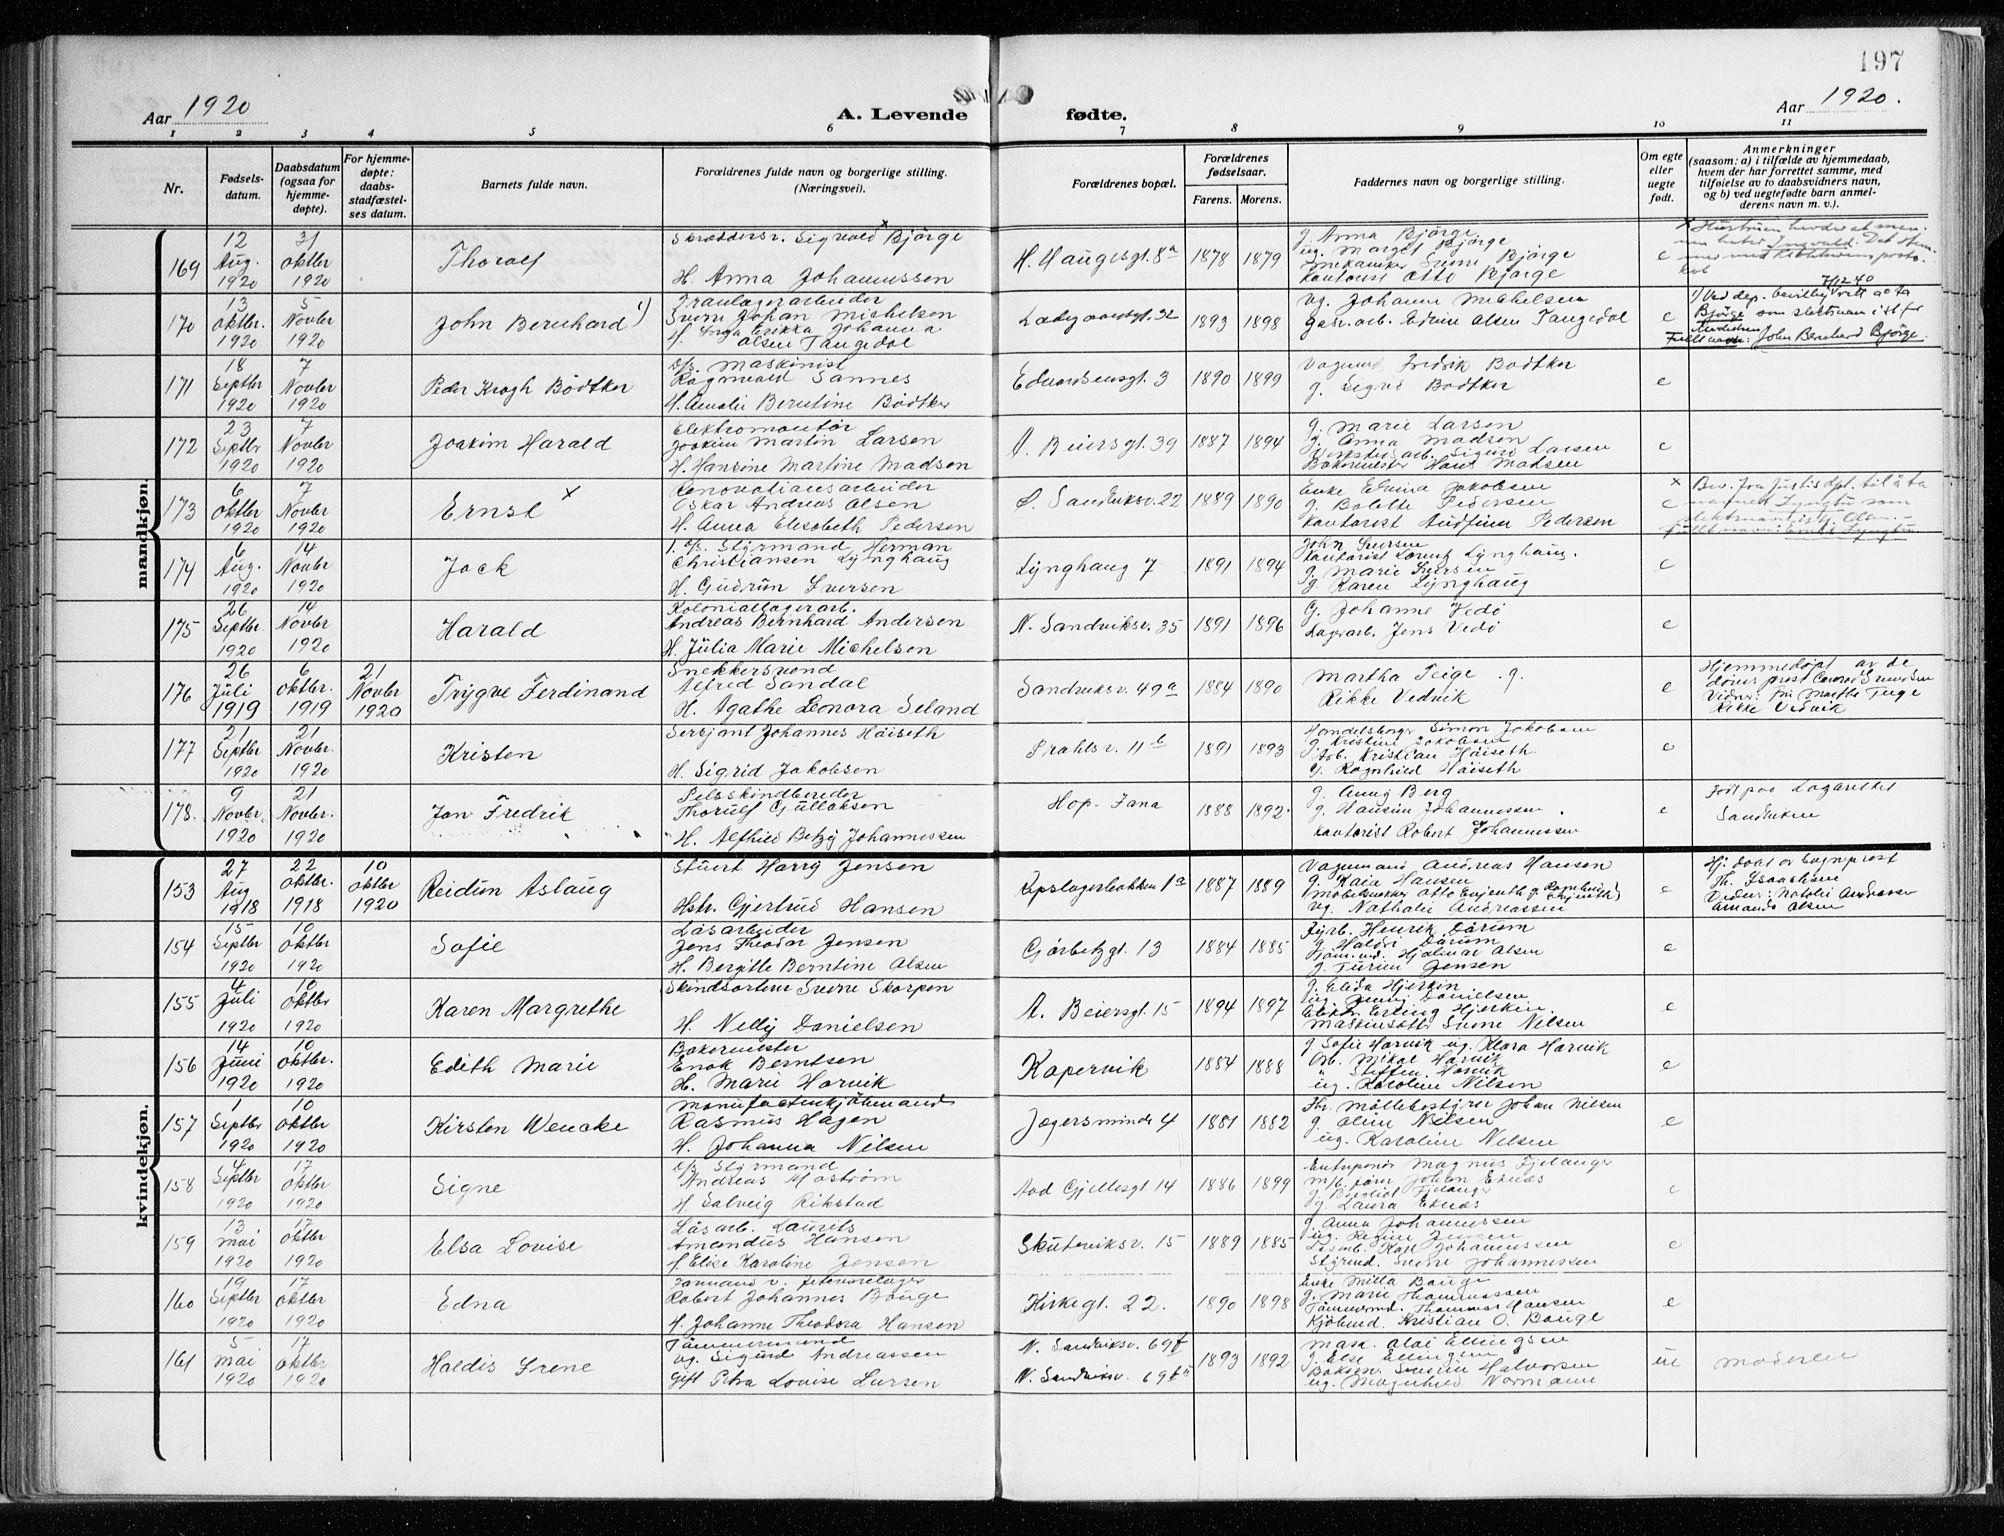 197
Aar 1920
A. Levende fødte.
Aar 1920.
1 2 3 4 5 6 7 8 9 10 11
Nr.
Fødsels-
datum.
Daabsdatum
(ogsaa for
hjemme-
døpte).
For hjemme-
døpte:
daabs-
stadfæstel-
ses datum.
Barnets fulde navn.
Forældrenes fulde navn og borgerlige stilling.
(Næringsvei).
Forældrenes bopæl.
Forældrenes
fødselsaar.
Farens. Morens.
Faddernes navn og borgerlige stilling.
Om egte
eller
uegte
født.
Anmerkninger
(saasom: a) i tilfælde av hjemmedaab,
hvem der har forrettet samme, med
tilføielse av to daabsvidners navn,
og b) ved uegtefødte barn anmel-
derens navn m. v.).
mandkjøn.
169
12 Aug. 1920
31 oktbr 1920
Thoralf
Sigvald x Bjørge
H. Anna Johannessen
H. Haugesgt. 8a
1878 1879
g. Anna Bjørge
ug. Margot Bjørge
Kontorist Otto Bjørge
e
170
13 oktbr. 1920
5 Novbr 1920
John Bernhard 1)
Tranlagerarbeider
Sverre Johan Michelsen
H. Inga Erikka Johanna
Olsen Tangedal
Ladegaardsgt. 32
1893 1898
ug. Johanne Michelsen
Edvin Olsen Tangedal
e
7/12 40
1) Ved dep. bevilling rett a ta
Bjørge som slektsnavn ist. for
Fullt navn: John Bernhard Bjørge
171
18 Septbr 1920
7 Novbr 1920
Peder Krogh Bødtker
d/s. Maskinist
Ragnvald Sannes
H. Amalie Berntine Bødtker
Edvardsensgt. 3
1890 1899
Vognmd Fredrik Bødtker
g. Sigrid Bødtker
e
172
23 Septbr 1920
7 Novbr 1920
Joakim Harald
Elektromontør
Joakim Martin Larsen
H. Hansine Martine Madsen
A. Beiersgt. 39
1887 1894
g. Marie Larsen
g. Anna Madsen
Verkstedsarb. Sigurd Larsen
Bakermester Hans Madsen
e
173
6 oktbr 1920
7 Novbr 1920
Ernst x
Renovationsarbeider
Oskar Andreas Olsen
H. Anna Elisabeth Pedersen
Ø. Sandviksv. 22
1889 1890
Enke Elvina Jakobsen
g. Bolette Pedersen
Kontorist Audfinn Pedersen
e
x Bev. fra Justis dpt. til å ta
174
6 Aug. 1920
14 Novbr 1920
Jack
1. d/s. Styrmand Herman
Christiansen Lynghaug
H. Gudrun Iversen
Lynghaug 7
1891 1894
John Iversen
Kontorist Lorentz Lynghaug.
g. Marie Iversen
g. Karen Lynghaug
e
175
26 Septbr. 1920
14 Novbr 1920
Harald
Koloniallagerarb.
Andreas Bernhard Andersen
H. Julia Marie Michelsen
N. Sandviksv. 35
1891 1896
G. Johanne Vedø
Lagerarb. Jens Vedø
e
176
26 Juli 1919
6 oktbr. 1919
21 Novbr 1920
Trygve Ferdinand
Snekkersvend
Alfred Sandal
H. Agathe Leonora Seland
Sandviksv. 49a
1884 1890
Martha Teige g.
Rikke Vedvik
e
Hjemmedøpt av
Rikke Vedvik
177
21 Septbr 1920
21 Novbr. 1920
Kristen
Sersjant Johannes Håiseth
H. Sigrid Jakobsen
Prahlsv. 11b
1891 1893
Handelsborger Simon Jakobsen
g. Kristine Jakobsen
Arb. Kristian Håiseth
g. Ragnhild Håiseth
e
178.
9 Novbr. 1920
21 Novbr. 1920
Jan Fredrik
Pelsskindbereder
Thorulf Gullaksen
H. Alfhild Betzy Johannessen
Hop - Fana
1888 1892.
g. Anny Berg
g. Hansine Johannessen
Kontorist Robert Johannessen
e
Født paa Lazarettet
Sandviken
kvindekjøn.
153
27 Aug 1918
22 oktbr. 1918
10 oktbr 1920
Reidun Aslaug
Stuert Harry Jensen
Hstr. Gjertrud Hansen
Repslagerbakken 1a
1887 1889
Vognmand Andreas Hansen
g. Kaia Hansen
ug. Nathalie Andreassen
e
Hj. døpt av Sogneprest
Th. Isaachsen
Vidner: Natalie Andreassen
Amanda Olsen
154
15 Septbr 1920
10 oktbr 1920
Sofie
Løsarbeider
Jens Theodor Jensen
H. Bergitte Berntine Olsen
Gjørbelzgt. 13
1884 1885
Fyrb. Henrik Dårum
g. Haldis Dårum
Hjalmar Olsen
g. Turine Jensen
e
155
4 Juli 1920
10 oktbr 1920
Karen Margrethe
Skindsorterer Sverre Skorpen
H. Nelly Danielsen
A. Beiersgt. 15
1894 1897
g. Elida Hjerkin
ug. Jenny Danielsen
Erling Hjerken
Sverre Nilsen
e
156
14 Juni 1920
10 oktbr. 1920
Edith Marie
Bakermester
Enok Berntsen
H. Marie Hørvik
Kopervik
1884 1888
g. Sofie Hørvik ug. Klara Hørvik
Arb. Mikal Hørvik
" Steffen Hørvik
ug. Karoline Nilsen
e
157
1 Septbr 1920
10 oktbr 1920
Kirsten Wencke
Manufacturkjøbmand
Rasmus Hagen
H. Johanna Nilsen
Jægersminde 4
1881 1882
Fhv. Møllebestyrer Johan Nilsen
g. Oline Nilsen
ug. Karoline Nilsen
e
158
4 Septbr 1920
17 oktbr 1920
Signe
d/s. Styrmand
Andreas Mostrøm
H. Solveig Rikstad
Aad Gjellesgt. 14
1886 1899
Entreprenør Magnus Fjelanger
Johan Eknæs
g. Bergliot Fjelanger
g. Laura Eknæs
e
159
13 mai 1920
17 oktbr 1920
Elsa Lovise
Løsarb. Laurits
Amandus Hansen
H. Elise Karoline Jensen
Skuteviksv. 15
1889 1885
g. Anna Johannessen
ug. Regine Jensen
Løsarb. Karl Johannessen
Styrmd. Sverre Johannessen
e
160
19 Septbr 1920
17 oktbr 1920
Edna
Formand v. fetevarelager
Robert Johannes Bauge
H. Johanne Theodora Hansen
Kirkegt. 22.
1890 1898
Enke Milla Bauge
g. Marie Thommassen
Tømmermd. Thommas Hansen
Kjøbmd. Kristian O. Bauge
e
161
5 mai 1920
17 oktbr 1920
Haldis Irene
Tømmermand
ug. Sigurd Andreassen
Gift Petra Lovise Larsen
N. Sandviksv. 69f
N. Sandviksv. 69f
1893 1892
Mask. Olai Ellingsen
g. Else Ellingsen
Severin Halvorsen
ug. Magnhild Normann
ue
moderen